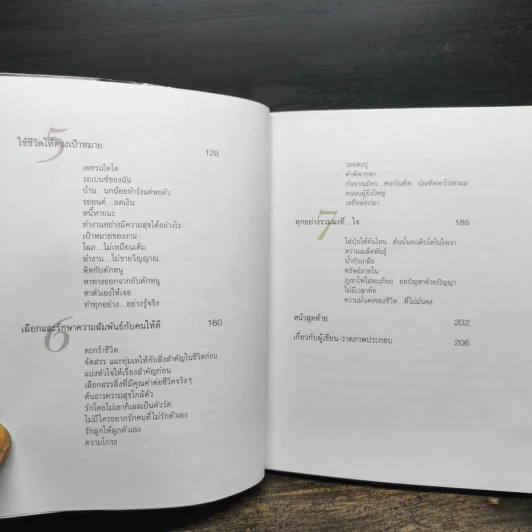 5
ใช้ชีวิตให้ตรงเป้าหมาย 128
เพชรเม็ดโต
รถเบนซ์ของฉัน
บ้าน นกน้อยทำรังแต่พอตัว
รถยนต์...ผลเงิน
หนี้หายนะ
ทำงานอย่างมีความสุขได้อย่างไร
เป้าหมายของงาน
โลภ...ไม่เหมือนเดิม
ทำงาน...ไม่ขายวิญญาณ
ติดกับดักหนู
หาทางออกจากกับดักหนู
หาตัวเองให้เจอ
ทำทุกอย่าง...อย่างรู้จริง
6
เลือกและรักษาความสัมพันธ์กับคนให้ดี 160
ตะกร้าชีวิต
จัดสรร และทุ่มเทให้กับสิ่งสำคัญในชีวิตก่อน
แบ่งหัวใจให้เรื่องสำคัญก่อน
เลือกสรรสิ่งที่มีคุณค่าต่อชีวิตจริงๆ
ค้นธารความสุขใกล้ตัว
รักโดยไม่เอากิเลสเป็นตัววัด
ไม่มีใครอยากรักคนที่ไม่รักตัวเอง
รักลูกให้ผูกตัวเอง
ความโกรธ
รอยตะปู
คำพิพากษา
กัลยาณมิตร...คบบัณฑิต บัณฑิตพาไปหาผล
คนจนผู้ยิ่งใหญ่
เหยื่อล่อปลา
7
ทุกอย่างรวมลงที่...ใจ 188
ใส่ปุ๋ยให้ต้นไหน ต้นนั้นจะเติบโตในใจเรา
หว่านเมล็ดพันธุ์
น้ำกับเกลือ
ทรัพย์ภายใน
ภูเขาไฟใส่ตะเกียบ ย่อปัญหาด้วยปัญญา
ไม่มีเวลาท้อ
ความมั่นคงของชีวิต...ที่ไม่มั่นคง
หน้าสุดท้าย 202
เกี่ยวกับผู้เขียน-วาดภาพประกอบ 206